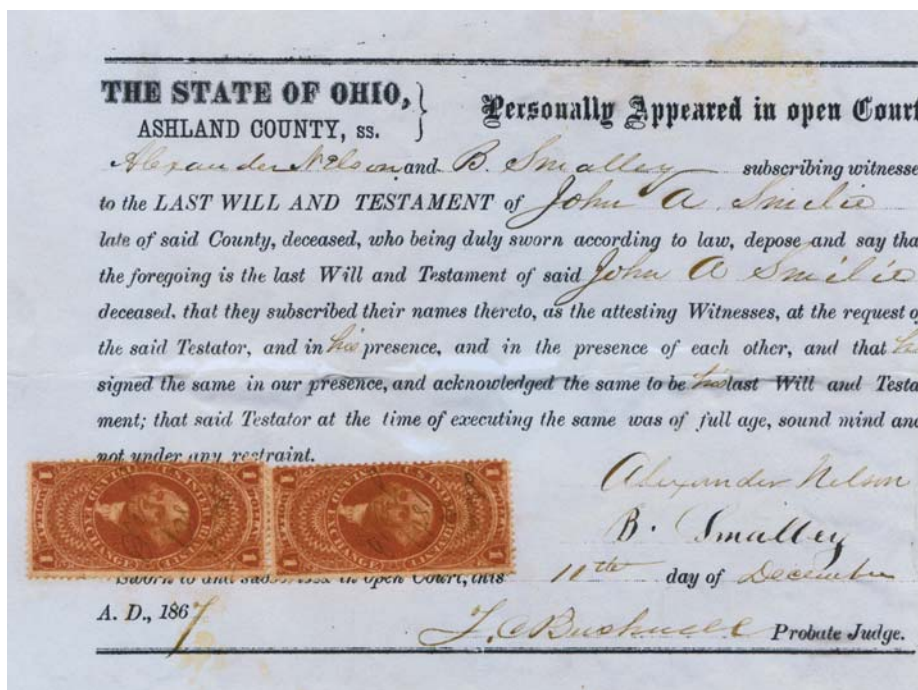 THE STATE OF OHIO,
ASHLAND COUNTY, ss.
Personally Appeared in open Court
Alexander Nelson and B. Smalley subscribing witnesse
to the LAST WILL AND TESTAMENT of John A Smilie
late of said County, deceased, who being duly sworn according to law, depose and say tha
the foregoing is the last Will and Testament of said John A Smilie
deceased, that they subscribed their names thereto, as the attesting Witnesses, at the request o
the said Testator, and in his presence, and in the presence of each other, and that he
signed the same in our presence, and acknowledged the same to be his last Will and Testa
ment; that said Testator at the time of executing the same was of full age, sound mind and
not under any restraint.
Alexander Nelson
B. Smalley
1 U.S. INTER. REV. 1
1 FOREIGN EXCHANGE 1
Sworn to and subscribed in open Court, this 11th day of December
A. D., 1867
Probate Judge.